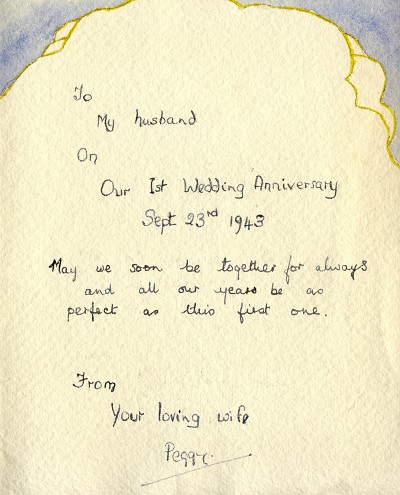 To
My husband
On
Our 1st Wedding Anniversary
Sept 23rd 1943
May we soon be together for always
and all our years be as
perfect as this first one.
From
Your loving wife
Peggy.